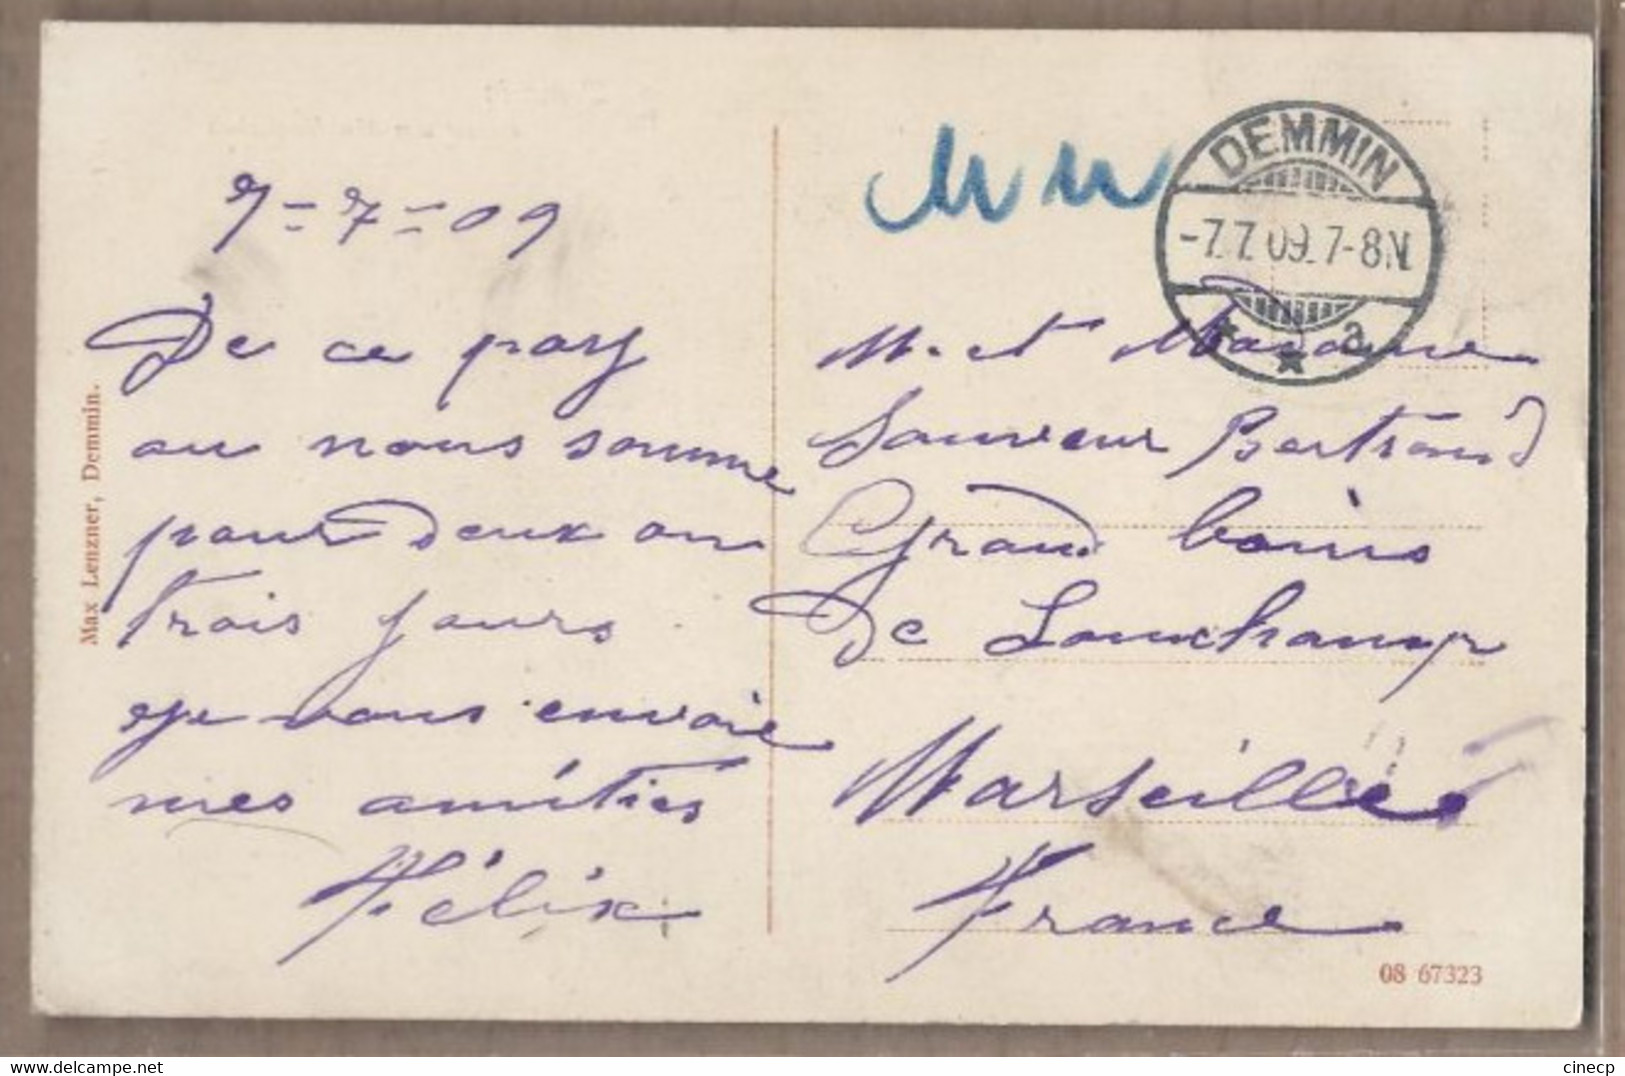 7-7-09
De ce pays
ou nous somme
pour deux ou
trois jours.
Je vous envoie
mes amitiés
Félix
Max Lenzner, Demmin.
DEMMIN
-7.7.09.7-8N.
* * a
M. et Madame
Sauveur Bertrand
Grand bains
De Lonchamp
Marseille
France
08 67323
cinecp